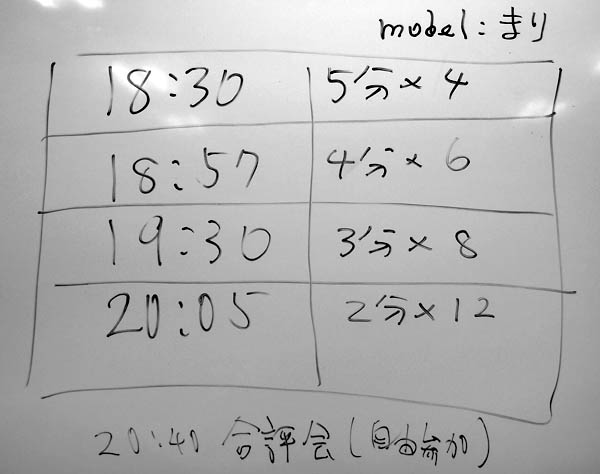 model:まり
18:30 5分×4
18:57 4分×6
19:30 3分×8
20:05 2分×12
20:40 合評会(自由参加)